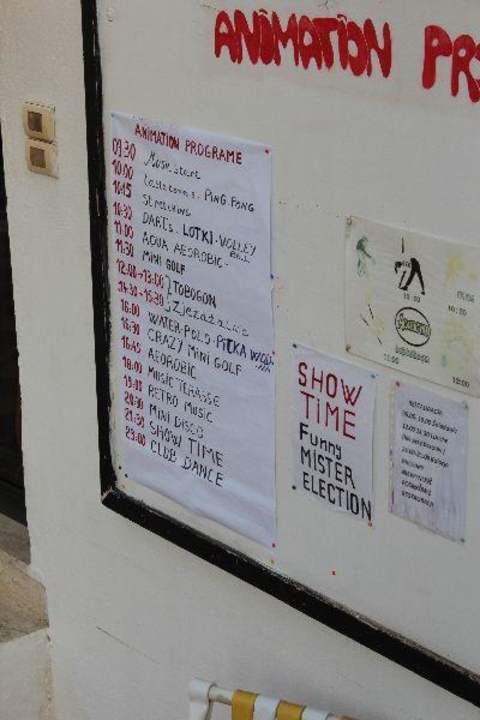 ANIMATION PR
ANIMATION PROGRAME
09:30 Music start
10:00 PING PONG
10:15 STRETCHING
10:30 DARTS - LOTKI - VOLLEY BALL
11:00 AQUA AEOROBIC
11:30 MINI GOLF
12:00-13:00 TOBOGON
14:30-15:30 Zjeżdżalnie
16:00 WATER-POLO - PIŁKA WOD
16:30 CRAZY MINI GOLF
16:45 AEOROBIC
18:00 MUSIC TERASSE
19:00 RETRO MUSIC
20:30 MINI DISCO
21:30 SHOW TIME
23:00 CLUB DANCE
SHOW
TIME
Funny
MISTER
ELECTION
10:00
10:30
11:00
12:00